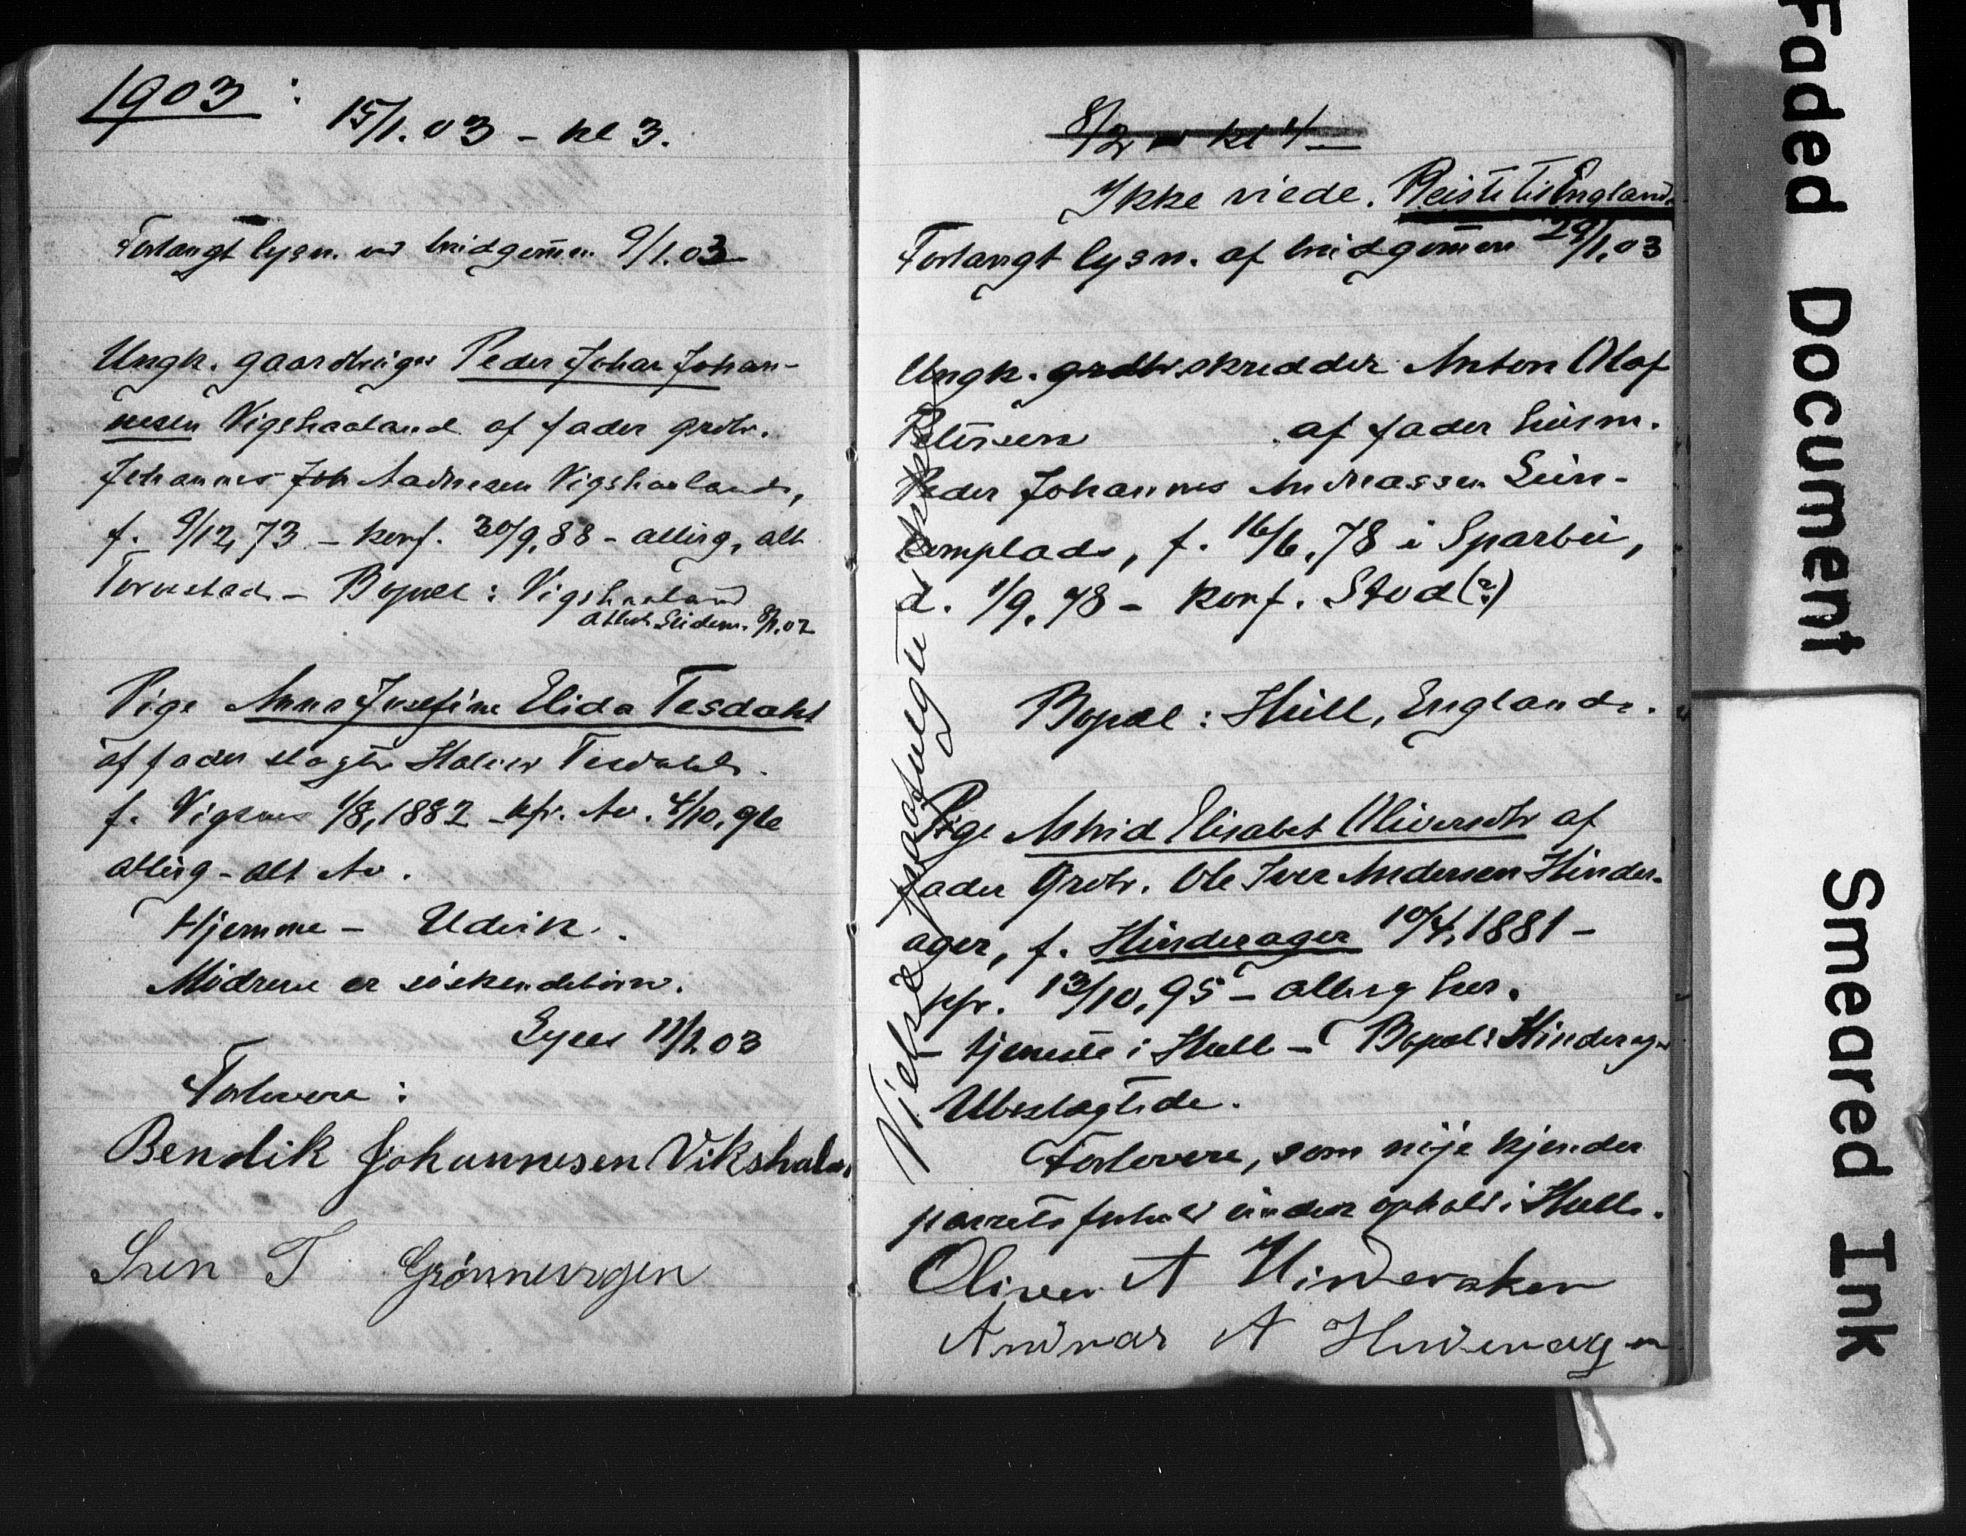 1903 :
15/1.03 - kl 3.
Forlangt lysn. ved brudgommen 9/1.03
Ungk. gaardbruger Peder Johan Johan-
nesen Vigshaaland af fader grdbr.
Johannes Joh Aadnesen Vigshaaland,
f. 9/12,73 - konf. 30/9.88 - alting, alt
Torvestad - Bopæl: Vigshaaland
attest 8/1.02
Pige Anna Josefine Elida Tesdahl
af fader slagter Tesdahl.
f. Vigsnes 1/8,1882 - kfr. Av. 4/10,96
alting - alt Av.
Hjemme - Udvik.
Mødrene er søskendebørn.
Lyses 11/1 03
Forlovere :
Bendik Johannesen Vikshaland
Sven T Grønnevigen
8/2 kl 4
Ikke viede. Reiste til England
Forlangt lysn. af brudgommen 29/1.03
Ungk. grdbr. skredder Anton Olaf
Petersen af fader husm.
Peder Johannes Andreassen Lein-
templads, f. 16/6,78 i Sparbu,
d. 1/9.78 - konf. Stod (?)
Bopæl: Hull, England.
Pige Astrid Elisabet Oliversdtr af
fader Grdbr. Ole Iver Andersen Hinder-
ager, f. Hinderager 10/4,1881 -
kfr. 13/10,95 - alting her.
- tjeneste i Hull - Bopæl: Hinderager
Ubeslægtede.
Forlovere, som nøje kjender
parrets forhold under ophold i Hull.
Oliver A Hinderaker
Andreas A Hinderager
Vielse
Faded Document
Smeared Ink